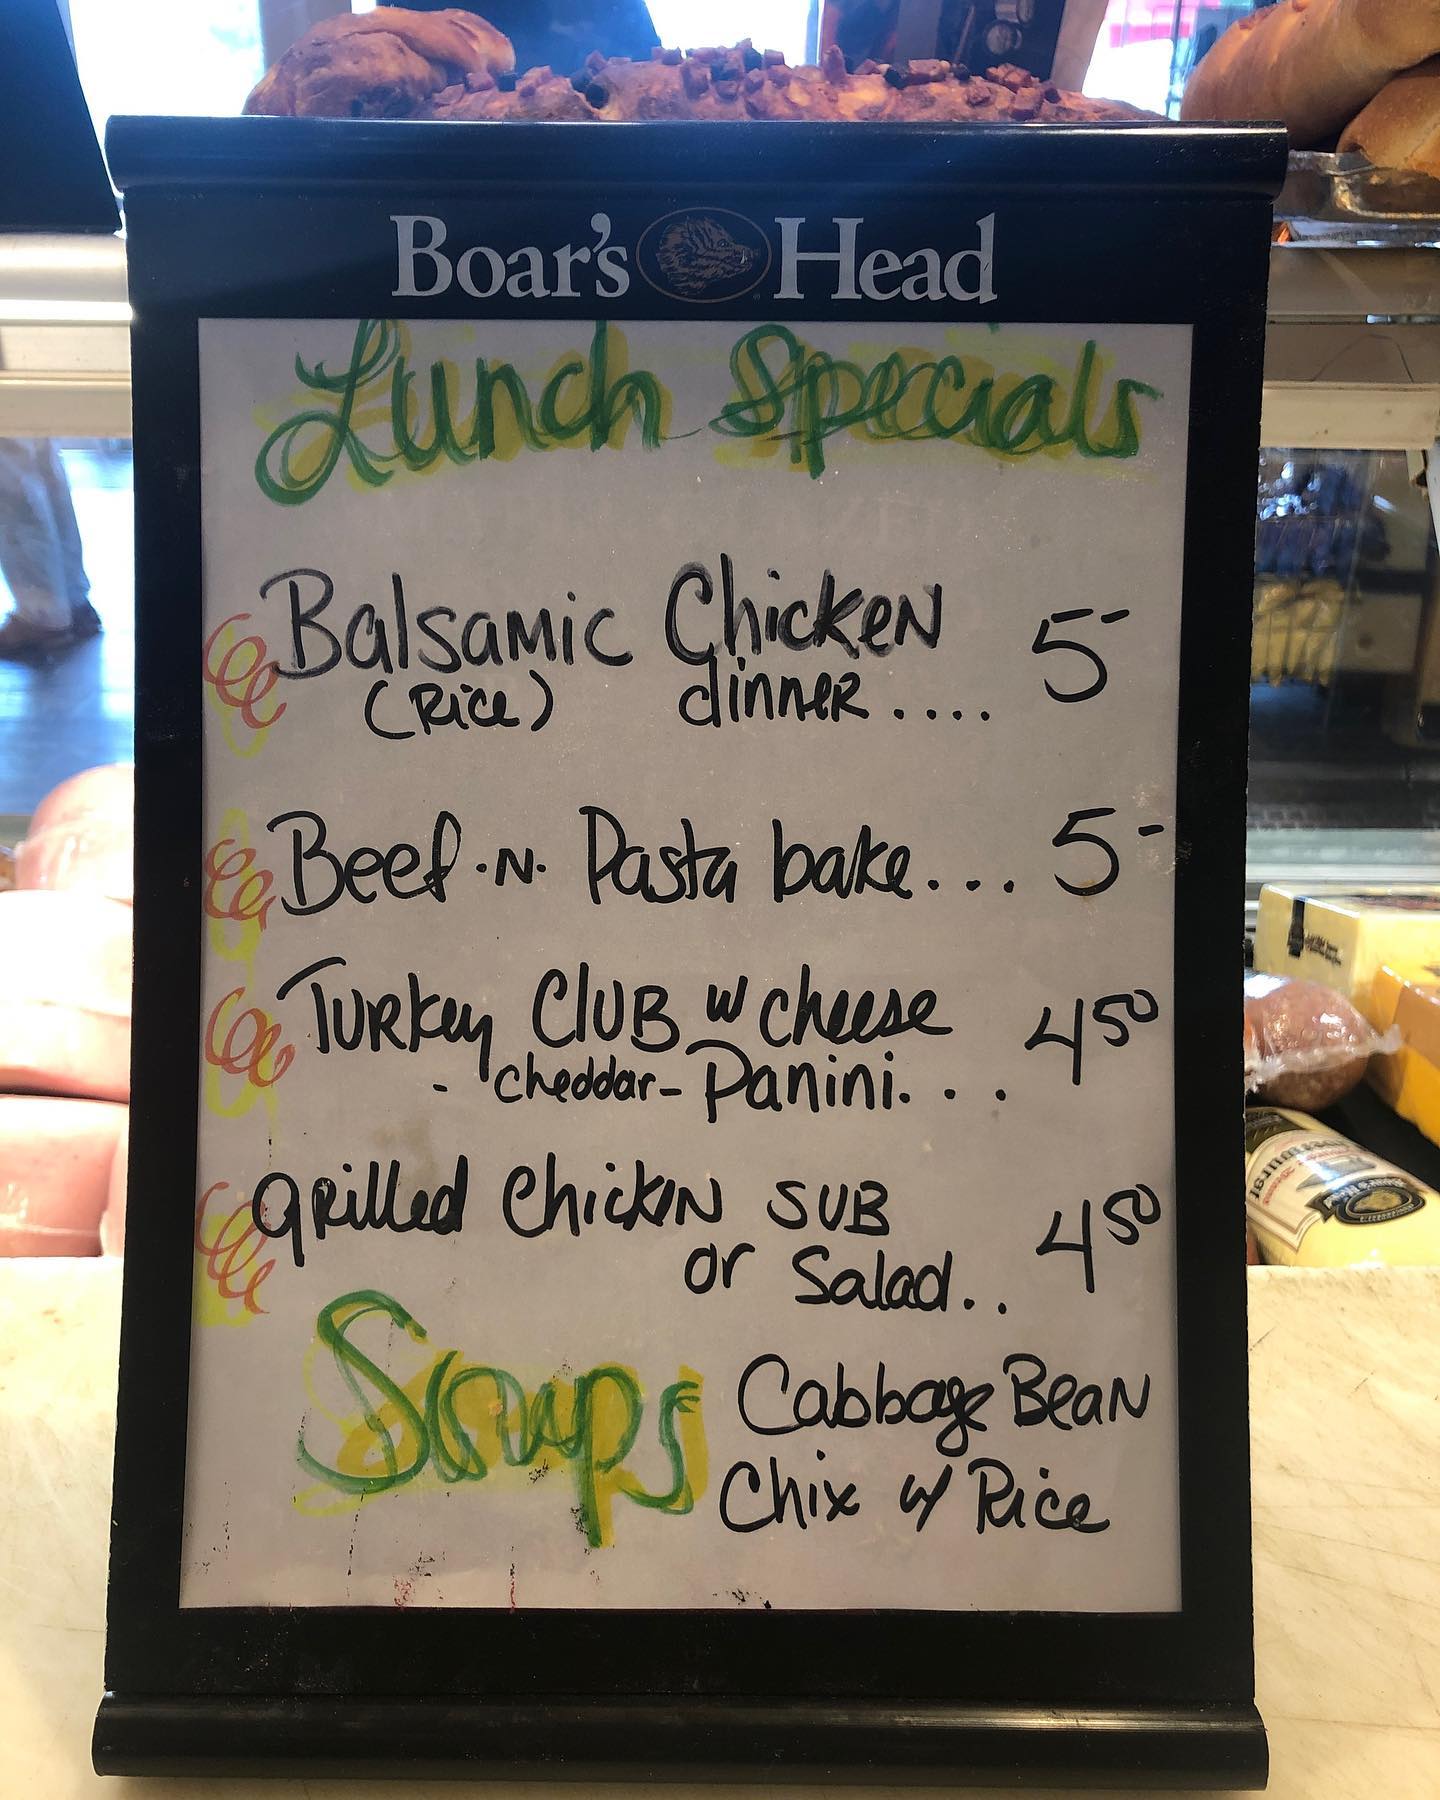 Boar's Head
Lunch Specials
Balsamic Chicken 5-
(Rice) dinner....
Beef -N- Pasta bake... 5-
Turkey Club w cheese 4 50
- cheddar - Panini...
Grilled Chicken SUB 4 50
or Salad..
Soups Cabbage Bean
Chix w/ Rice